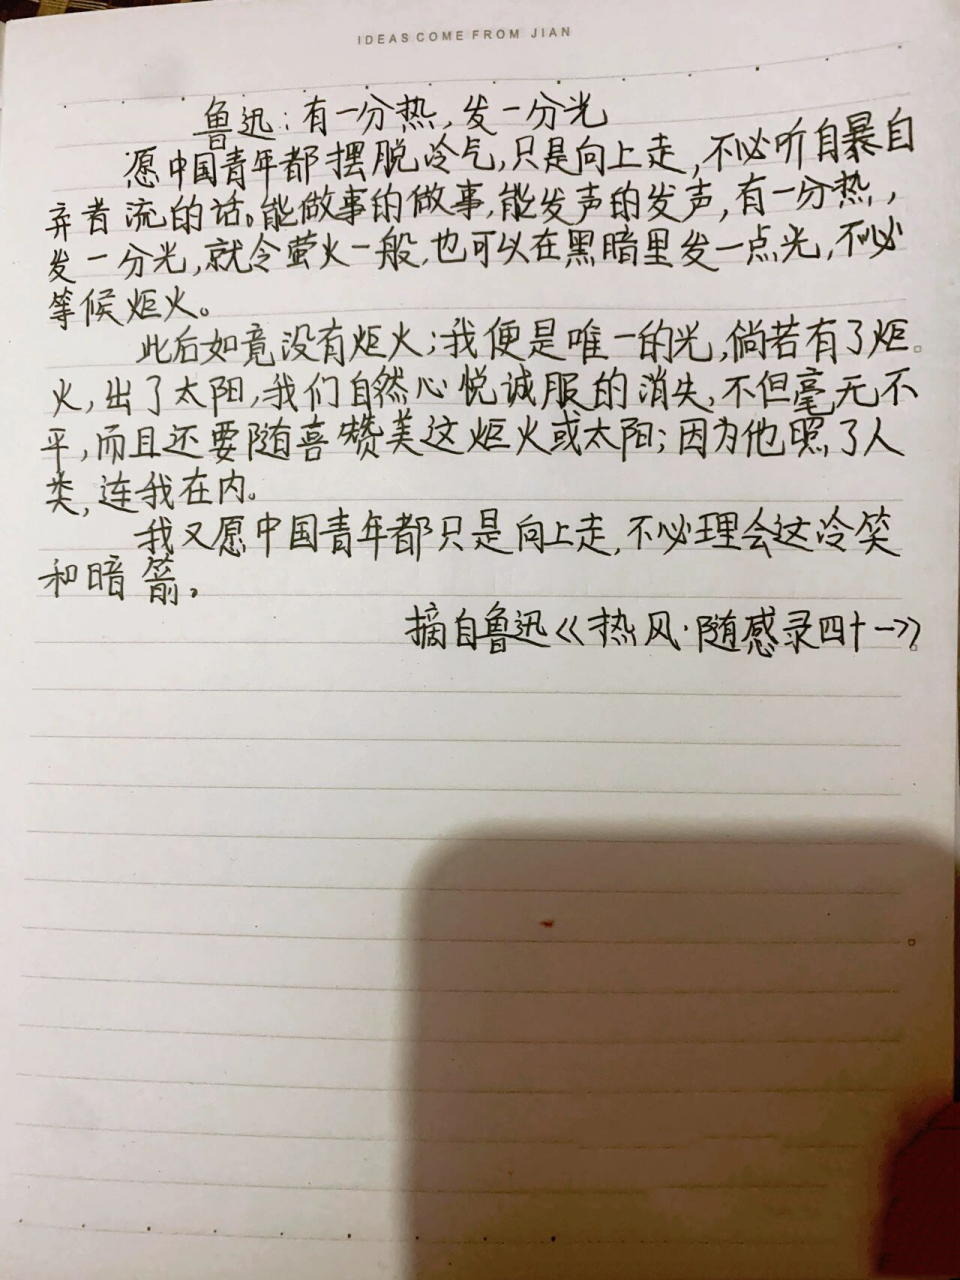 IDEAS COME FROM JIAN
鲁迅:有一分热,发一分光
愿中国青年都摆脱冷气,只是向上走,不必听自暴自
弃者流的话。能做事的做事,能发声的发声,有一分热,
发一分光,就令萤火一般,也可以在黑暗里发一点光,不必
等候炬火。
此后如竟没有炬火;我便是唯一的光,倘若有了炬
火,出了太阳,我们自然心悦诚服的消失,不但毫无不
平,而且还要随喜赞美这炬火或太阳;因为他照了人
类,连我在内。
我又愿中国青年都只是向上走,不必理会这冷笑
和暗箭。
摘自鲁迅《热风·随感录四十一》